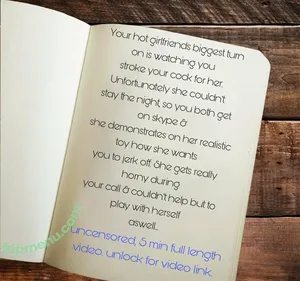 Your hot girlfriends biggest turn
on is watching you
stroke your cock for her.
Unfortunately she couldn't
stay the night, so you both get
on skype &
she demonstrates on her realistic
toy how she wants
you to jerk off. She gets really
horny during
your call & couldn't help but to
play with herself
aswell..
uncensored, 5 min full length
video. unlock for video link.